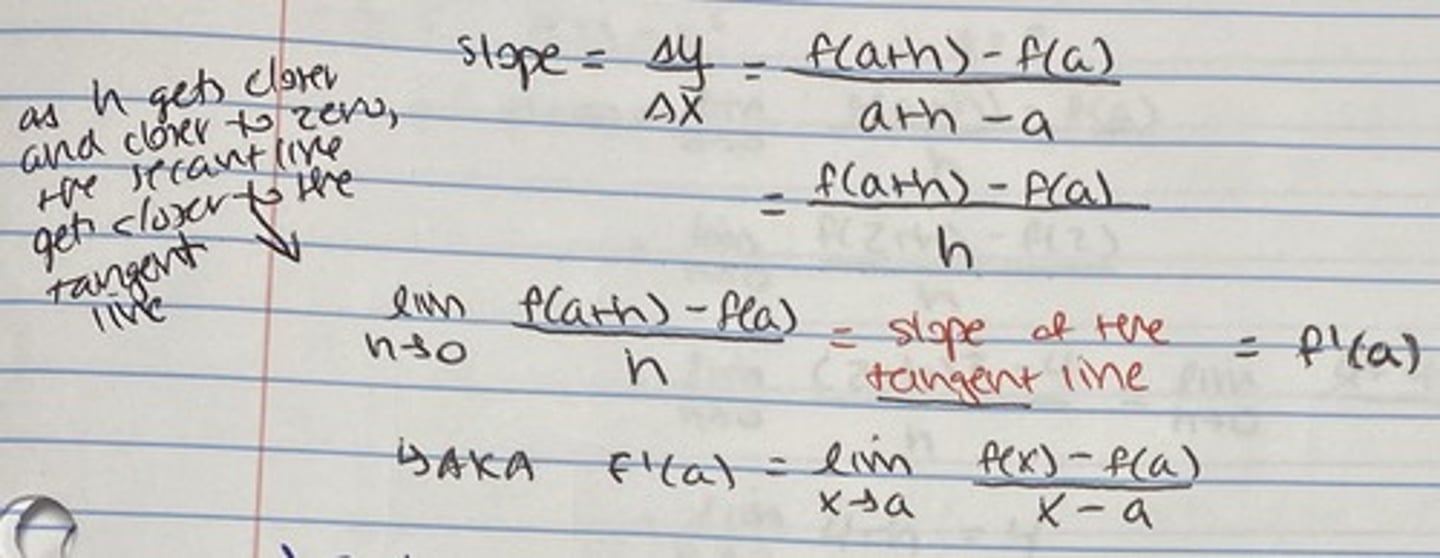 as h gets closer
and closer to zero,
the secant line
gets closer to the
tangent
line
slope = Δy/Δx = f(a+h) - f(a)/a+h - a
= f(a+h) - f(a)/h
lim h→0 f(a+h) - f(a)/h = slope of the tangent line = f'(a)
↳ AKA f'(a) = lim x→a f(x) - f(a)/x - a